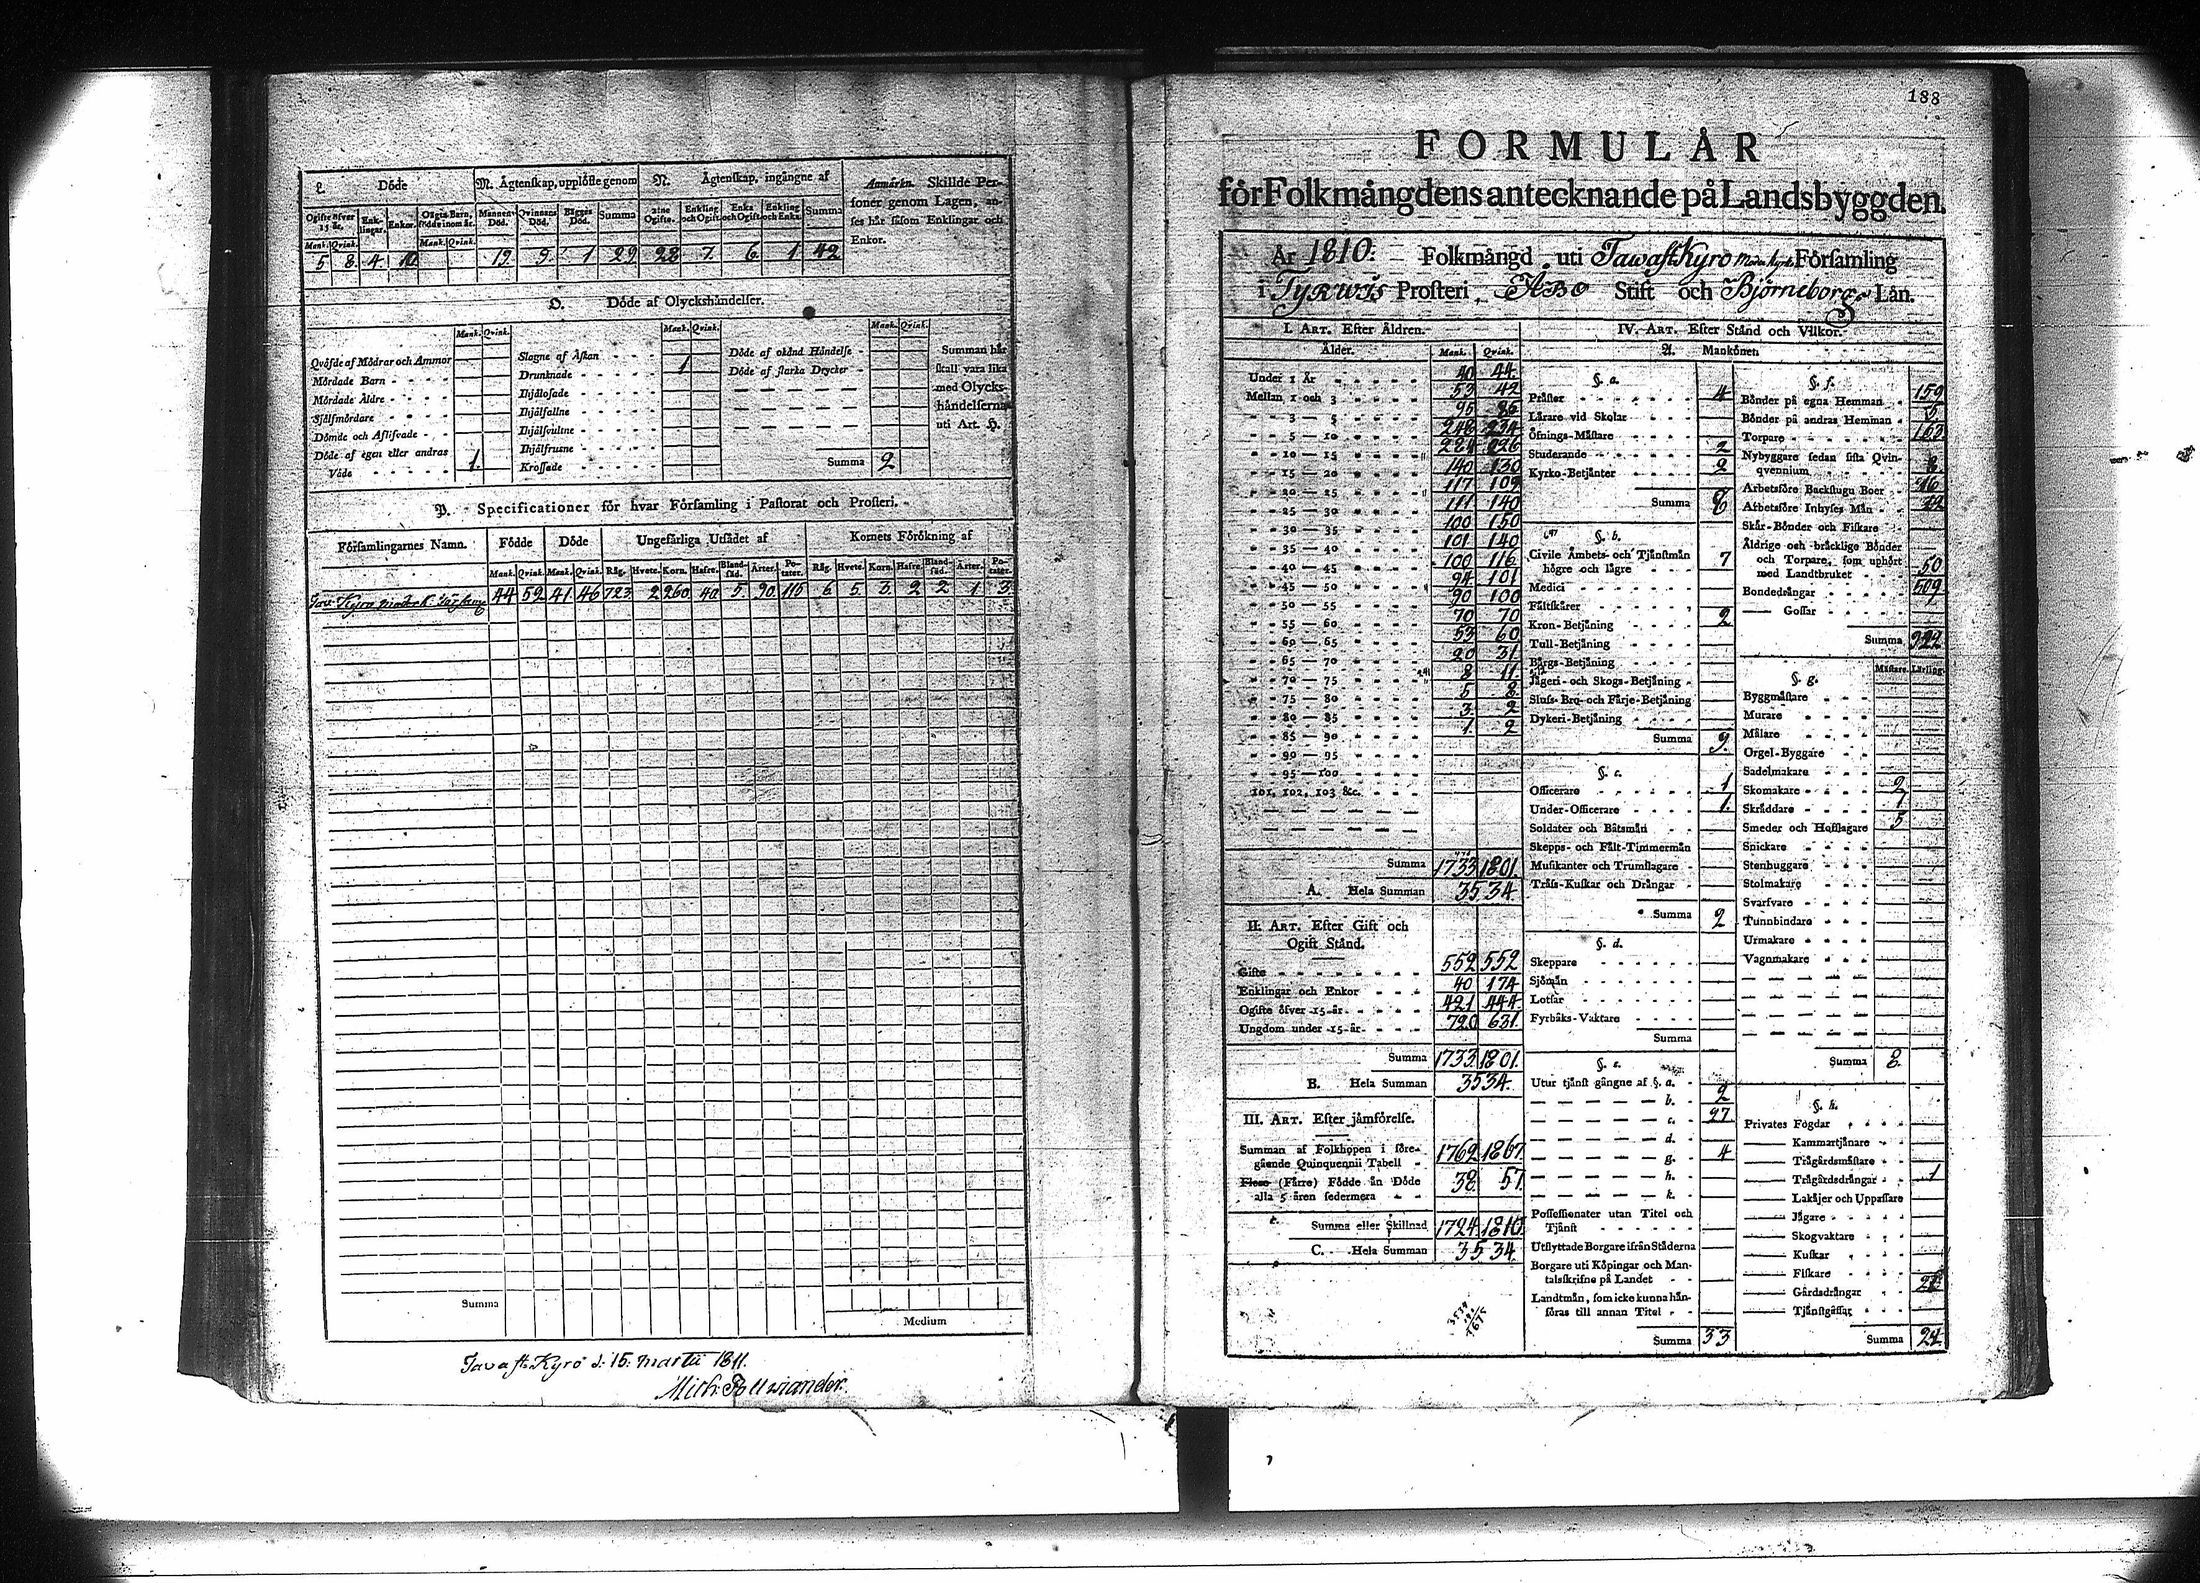 L. Döde
M. Ägtenskap, upplöste genom
N. Ägtenskap, ingångne af
Anmärkn. Skillde Personer genom Lagen, anses här såsom Enklingar och Enkor.
Ogifte öfver 15 år. Enklingar. Enkor. Oägta Barn, födde inom år. Mannens Död. Qvinnans Död. Bägges Död. Summa 2:ne Ogifte. Enkling och Ogift. Enka och Ogift. Enkling och Enka. Summa
Mank. Qvink. Mank. Qvink.
5 8. 4. 10. 19. 9. 1 29 28 7. 6. 1. 42
O. Döde af Olyckshändelser.
Mank. Qvink. Mank. Qvink. Mank. Qvink.
Qväfde af Mödrar och Ammor
Mördade Barn
Mördade Äldre
Självmördare
Dömde och Aflifvade
Döde af egen eller andras
Våde 1.
Slagne af Åskan
Drunknade 1
Ihjälosade
Ihjälfallne
Ihjälsvultne
Ihjälfrusne
Krossade
Döde af okänd Händelse
Döde af starka Drycker
Summa 2
Summan här
skall vara lika
med Olycks-
händelserna
uti Art. H.
P. Specificationer för hvar Församling i Pastorat och Prosteri.
Församlingarnes Namn. Födde Döde Ungefärliga Utsädet af Kornets Förökning af
Mank. Qvink. Mank. Qvink. Råg. Hvete. Korn. Hafre. Blandsäd. Ärter. Potater. Råg. Hvete. Korn. Hafre. Blandsäd. Ärter. Potater.
Tav. Kyro moderk. 44 52 41. 46 723 2 260 40 5. 90. 110 6 5. 3. 2 2 1 3
Summa Medium
Tavast Kyro d. 15. Martii 1811.
188
FORMULÄR
för Folkmängdens antecknande på Landsbyggden.
År 1810: Folkmängd uti Tawast Kyro Moder Kyrko Församling
i Tyrwis Prosteri, Åbo Stift och Björneborgs Län.
I. Art. Efter Åldren.
Ålder. Mank. Qvink.
Under 1 År 40 44
Mellan 1 och 3 53 42
3 — 5 95 86
5 — 10 248 234
10 — 15 284 226
15 — 20 140 130
20 — 25 117 109
25 — 30 111 140
30 — 35 100 150
35 — 40 101 140
40 — 45 100 116
45 — 50 94 101
50 — 55 90 100
55 — 60 70 70
60 — 65 53 60
65 — 70 20 31
70 — 75 8 11
75 — 80 5 8
80 — 85 3. 2
85 — 90 1. 2
90 — 95
95 — 100
101, 102, 103 &c.
Summa 1733 1801.
A. Hela Summan 3534.
II. Art. Efter Gift och
Ogift Stånd.
Gifte 552 552
Enklingar och Enkor 40 174
Ogifte öfver 15 år 421 444
Ungdom under 15 år 720 631
Summa 1733 1801.
B. Hela Summan 3534.
III. Art. Efter jämförelse.
Summan af Folkhopen i före-
gående Quinquennii Tabell 1762 1867.
Flere (Färre) Födde än Döde
alla 5 åren sedermera 38 57.
Summa eller Skillnad 1724. 1810.
C. Hela Summan 3534.
IV. Art. Efter Stånd och Vilkor.
A. Mankönet
§. a.
Präster 4
Lärare vid Skolar
Öfnings-Mästare
Studerande 2
Kyrko-Betjänter 2
Summa 8
§. b.
Civile Ämbets- och Tjänstmän
högre och lägre 7
Medici
Fältskärer
Kron-Betjäning 2
Tull-Betjäning
Bärgs-Betjäning
Jägeri- och Skogs-Betjäning
Sluss-Bro- och Färje-Betjäning
Dykeri-Betjäning
Summa 9.
§. c.
Officerare 1
Under-Officerare 1.
Soldater och Båtsmän
Skepps- och Fält-Timmermän
Musikanter och Trumslagare
Träss-Kuskar och Drängar
Summa 2
§. d.
Skeppare
Sjömän
Lotsar
Fyrbåks-Vaktare
Summa
§. e.
Utur tjänst gångne af §. a.
b. 2
c. 27
d.
g. 4
h.
k.
Possessionater utan Titel och
Tjänst
Utflyttade Borgare ifrån Städerna
Borgare uti Köpingar och Man-
talsskrifne på Landet
Landtmän, som icke kunna hän-
föras till annan Titel
Summa 33
§. f.
Bönder på egna Hemman 159
Bönder på andras Hemman 5
Torpare 163
Nybyggare sedan sista Qvin-
qvennium 8
Arbetsföre Backstugu Boer 16
Arbetsföre Inhyses Män
Skär-Bönder och Fiskare
Äldrige och bräcklige Bönder
och Torpare, som uphört
med Landtbruket 50
Bondedrängar 509
Gossar
Summa 922
Mästare. Lärling.
§. g.
Byggmästare
Murare
Målare
Orgel-Byggare
Sadelmakare
Skomakare 2
Skräddare 1
Smeder och Hofslagare 5
Snickare
Stenhuggare
Stolmakare
Svarfvare
Tunnbindare
Urmakare
Vagnmakare
Summa 8.
§. h.
Privates Fogdar
Kammartjänare
Trägårdsmästare
Trägårdsdrängar 1
Lakäjer och Uppassare
Jägare
Skogvaktare
Kuskar
Fiskare
Gårdsdrängar
Tjänstgossar
Summa 24